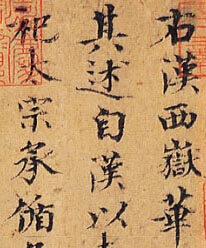 右漢西嶽華
其述自漢以
祀太宗承循